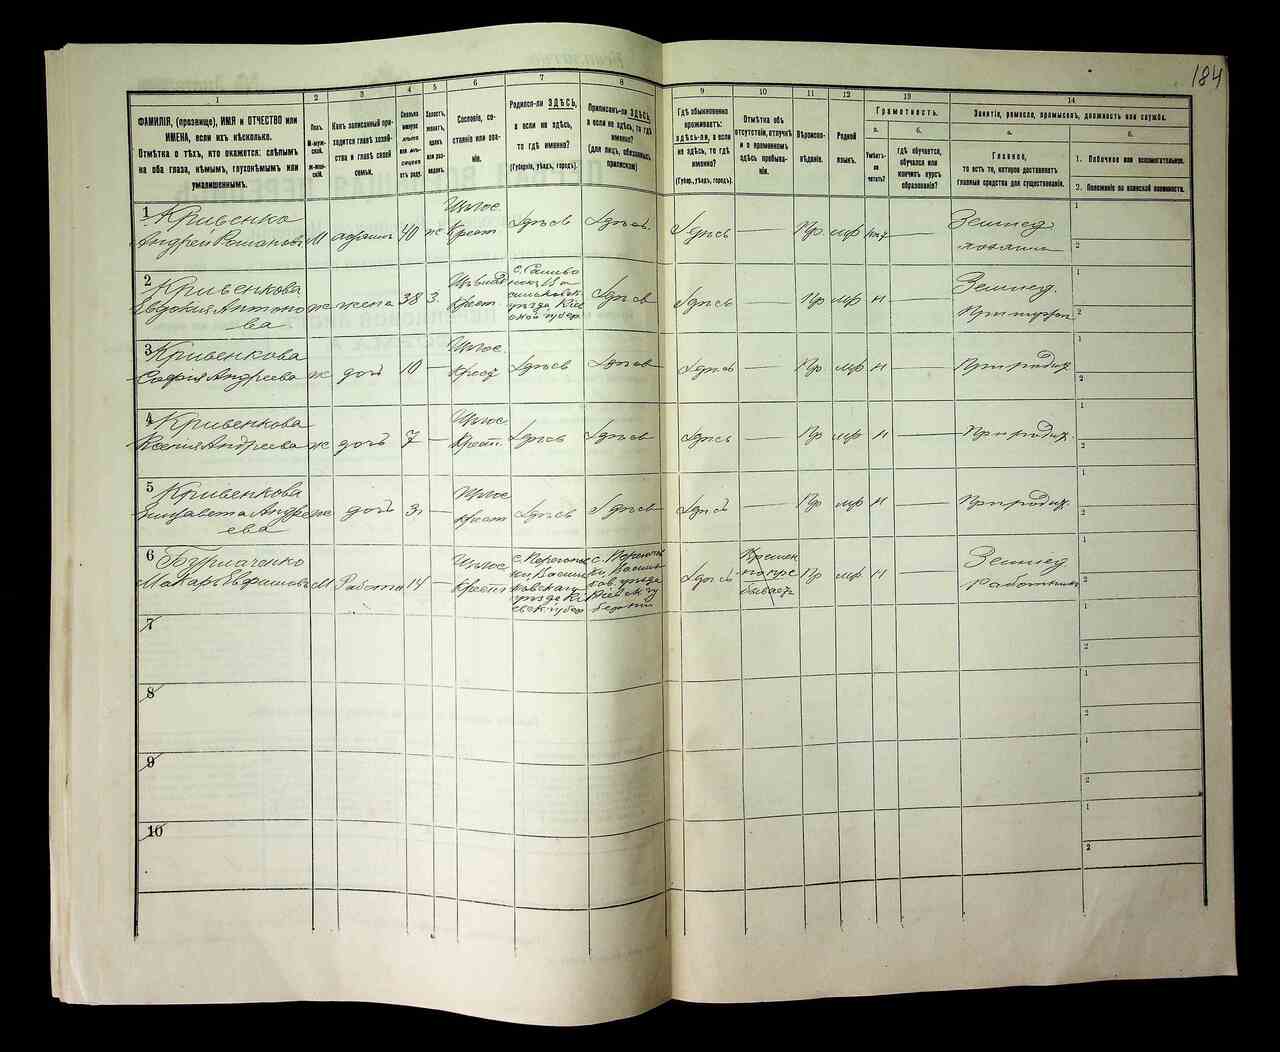 184
1 2 3 4 5 6 7 8 9 10 11 12 13 14
ФАМИЛІЯ, (прозвище), ИМЯ и ОТЧЕСТВО или
ИМЕНА, если ихъ нѣсколько.
Отмѣтка о тѣхъ, кто окажется: слѣпымъ
на оба глаза, нѣмымъ, глухонѣмымъ или
умалишеннымъ.
Полъ.
М-муж-
ской.
Ж-жен-
скій.
Какъ записанный при-
ходится главѣ хозяй-
ства и главѣ своей
семьи.
Сколько
минуло
лѣтъ
или мѣ-
сяцевъ
отъ роду.
Холостъ,
женатъ,
вдовъ
или раз-
веденъ.
Сословіе, со-
стояніе или зва-
ніе.
Родился-ли ЗДѢСЬ,
а если не здѣсь,
то гдѣ именно?
(Губернія, уѣздъ, городъ).
Приписанъ-ли ЗДѢСЬ,
а если не здѣсь, то гдѣ
именно?
(для лицъ, обязанныхъ
припискою)
Гдѣ обыкновенно
проживаетъ:
здѣсь-ли, а если
не здѣсь, то гдѣ
именно?
(Губер., уѣздъ, городъ).
Отмѣтка объ
отсутствіи, отлучкѣ
и о временномъ
здѣсь пребыва-
ніи.
Вѣроиспо-
вѣданіе.
Родной
языкъ.
Грамотность.
а.
Умѣетъ-
ли
читать?
б.
гдѣ обучается,
обучался или
кончилъ курсъ
образованія?
Занятія, ремесло, промыселъ, должность или служба.
а.
Главное,
то есть то, которое доставляетъ
главныя средства для существованія.
б.
1. Побочное или вспомогательное.
2. Положеніе по воинской повинности.
1 Кривенко
Андрей Романовъ М 40 ж Крест Здѣсь Здѣсь Здѣсь — Пр. — Землед
1
2
2 Кривенкова
Евдокія Антоно
ва ж жена 38 З. Крест. Здѣсь Здѣсь — Пр н — Землед.
1
2
3 Кривенкова
Софія Андреева ж доч 10 — Крест Здѣсь Здѣсь Здѣсь — Пр н — При родит.
1
2
4 Кривенкова
Ксенія Андреева ж дочь 7 — Крест. Здѣсь Здѣсь Здѣсь — Пр н — При родит.
1
2
5 Кривенкова
Елизавета Андре
ева ж дочь 3 — Крест Здѣсь Здѣсь Здѣсь — Пр н — При родит.
1
2
6 Бурмаченко
Макаръ Ефимовъ М Работн 14 — Крест Здѣсь Времен
но пре
бываетъ Пр н — Землед
Работникъ
1
2
7
1
2
8
1
2
9
1
2
10
1
2